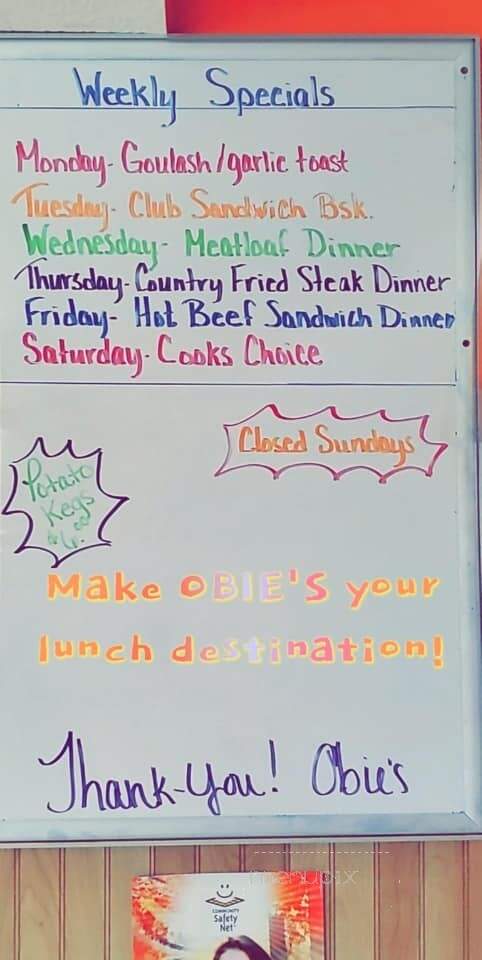 Weekly Specials
Monday- Goulash/garlic toast
Tuesday- Club Sandwich Bsk.
Wednesday- Meatloaf Dinner
Thursday- Country Fried Steak Dinner
Friday- Hot Beef Sandwich Dinner
Saturday- Cooks Choice
Closed Sundays
Potato
Kegs
$6.00
Make OBIE'S your
lunch destination!
Thank-You! Obie's
menupix
COMMUNITY
Safety
Net